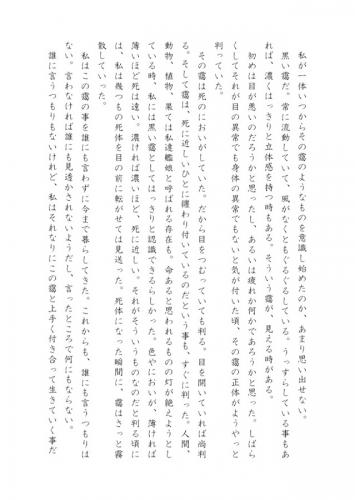 私が一体いつからその靄のようなものを意識し始めたのか、あまり思い出せない。
黒い靄だ。常に流動していて、風がなくともぐるぐるしている。うっすらしている事もあ
れば、濃くはっきりと立体感を持つ時もある。そういう靄が、見える時がある。
初めは目が悪いのだろうかと思ったし、あるいは疲れか何かであろうかと思った。しばら
くしてそれが目の異常でも身体の異常でもないと気が付いた頃、その靄の正体がようやっと
判っていた。
その靄は死のにおいがしていた。だから目をつむっていても判る。目を開いていれば尚判
る。そして靄は、死に近しいひとに纏わり付いているのだという事も、すぐに判った。人間、
動物、植物、果ては私達艦娘と呼ばれる存在も。命あると思われるものの灯が絶えようとし
ている時、私には黒い靄としてはっきりと認識できるらしかった。色やにおいが、薄ければ
薄いほど死は遠い。濃ければ濃いほど、死に近しい。それがそういうものなのだと判る頃に
は、私は幾つもの死体を目の前に転がせては見送った。死体になった瞬間に、靄はさっと霧
散していった。
私はこの靄の事を誰にも言わずに今まで暮らしてきた。これからも、誰にも言うつもりは
ない。言わなければ誰にも見透かされないようだし、言ったところで何にもならない。
誰に言うつもりもないけれど、私はそれなりにこの靄と上手く付き合って生きていく事だ